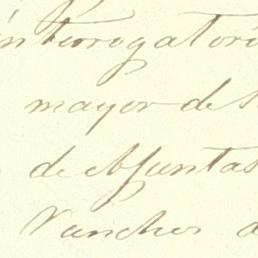 interrogatori
mayor de
de Ajuntas
Sanches